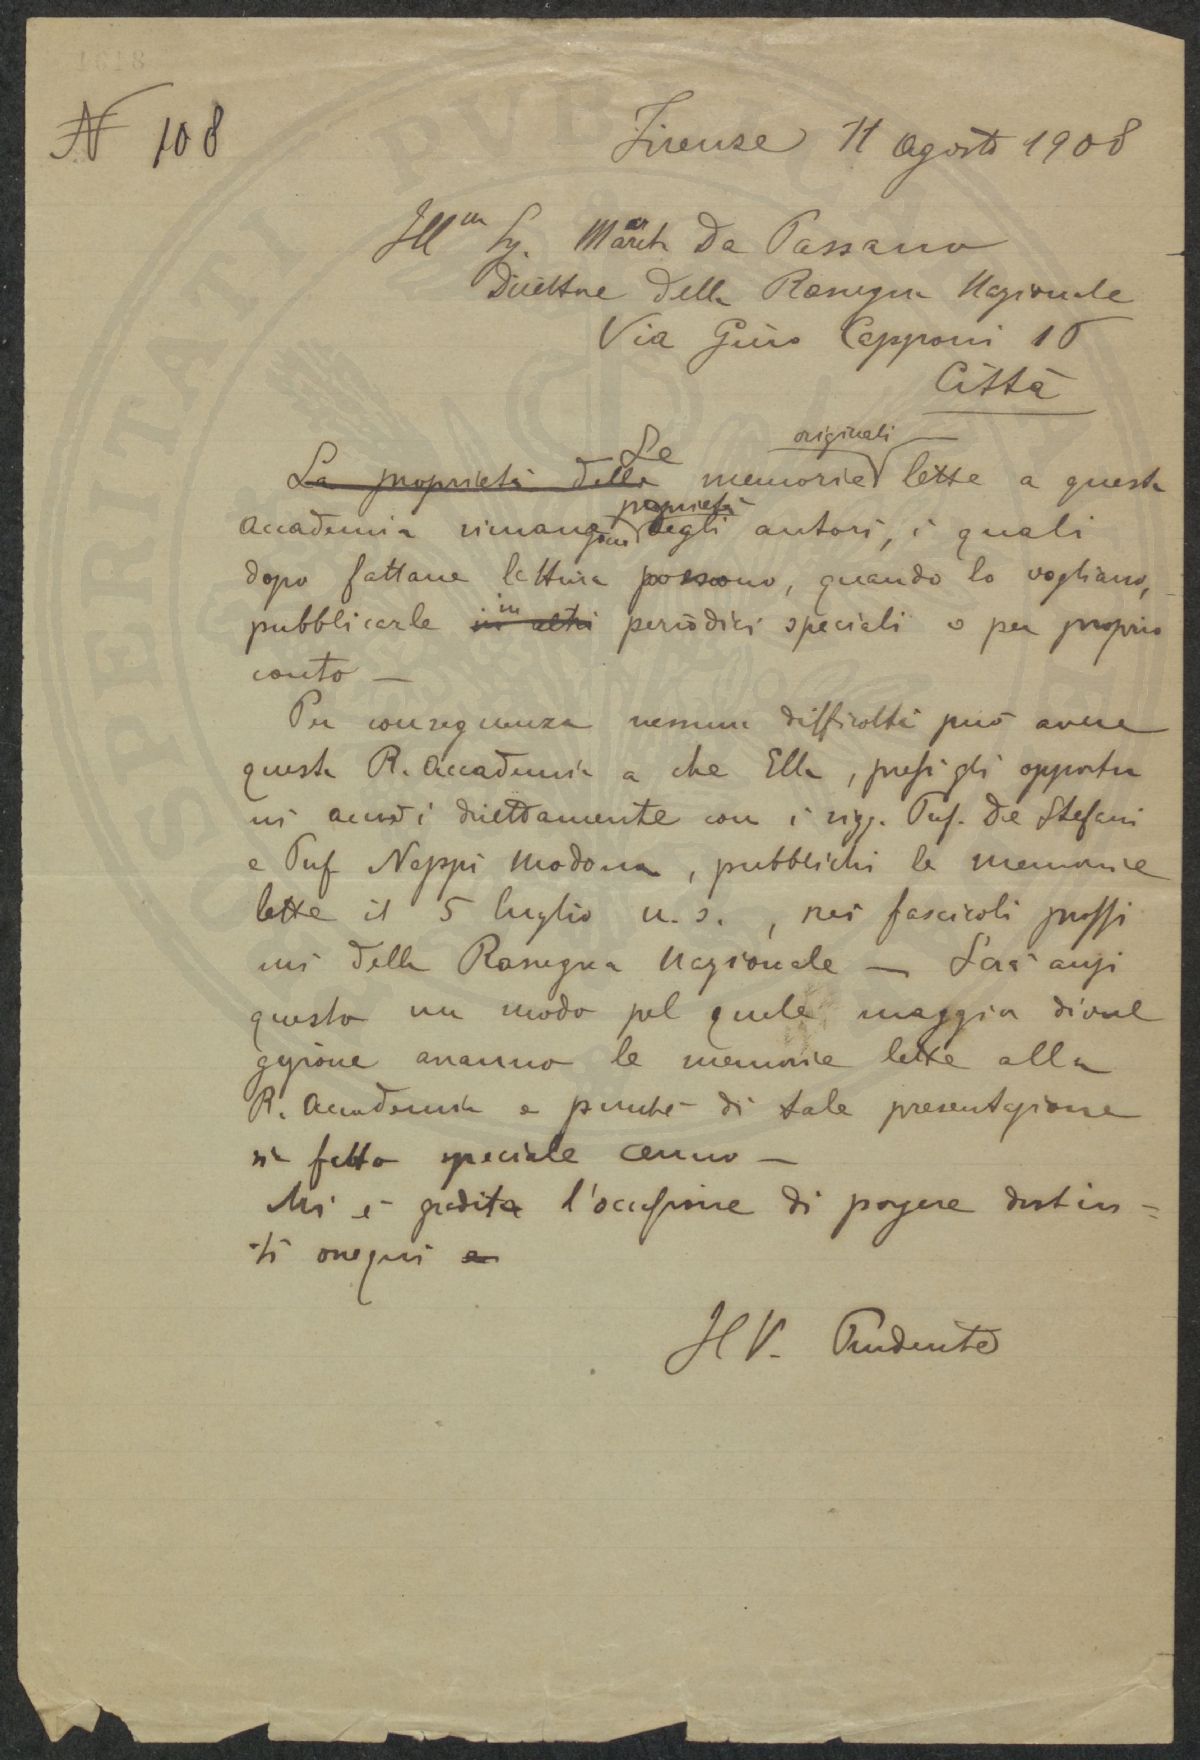 N 108
Firenze 11 Agosto 1908
Ill.m Sg. March Da Passano
Direttore della Rassegna Nazionale
Via Gino Capponi 10
Città
La proprietà delle Le memorie originali lette a questa
Accademia rimangono proprietà degli autori, i quali
dopo fattane lettura possono, quando lo vogliano,
pubblicarle in altri in periodici speciali o per proprio
conto —
Per conseguenza nessuna difficoltà può avere
questa R. Accademia a che Ella, presi gli opportu
ni accordi direttamente con i sigg. Prof. De Stefani
e Prof Neppi Modona, pubblichi le memorie
lette il 5 luglio u. s., nei fascicoli prossi
mi della Rassegna Nazionale — Sarà anzi
questo un modo pel quale maggior divul
gazione avranno le memorie lette alla
R. Accademia e purché di tale presentazione
sia fatto speciale cenno —
Mi è gradita l'occasione di porgere distin=
ti ossequi e
Il V. Presidente